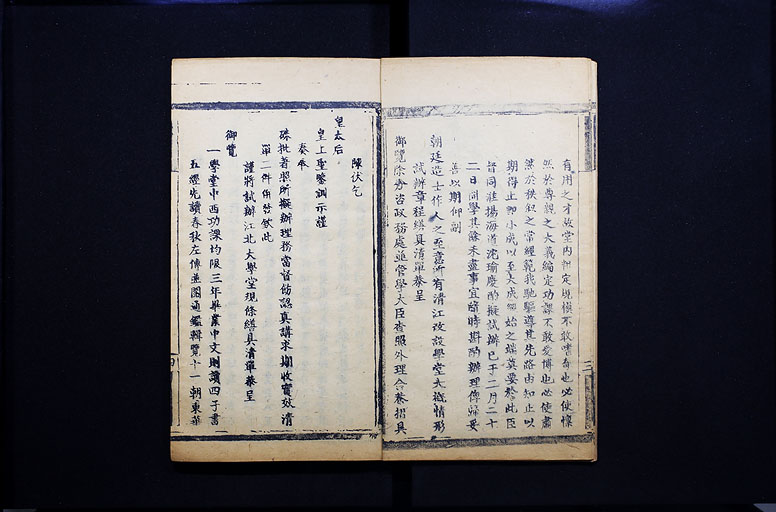 有用之才故堂內詳定規模不敢嗜奇也必使懍
然於尊親之大義編定功課不敢愛博也必使肅
然於秩敘之常經範我馳驅導其先路由知止以
期得止即小成以至大成經始之端莫要於此臣
督同淮揚海道沈瑜慶酌擬試辦已于二月二十
二日開學其餘未盡事宜隨時斟酌辦理俾歸妥
善以期仰副
朝廷造士作人之至意所有清江改設學堂大概情形
試辦章程繕具清單恭呈
御覽除分咨政務處並管學大臣查照外理合恭摺具
陳伏乞
皇太后
皇上聖鑒訓示謹
奏奉
硃批著照所擬辦理務當督飭認真講求期收實效清
單二件併發欽此
謹將試辦江北大學堂現條繕具清單恭呈
御覽
一學堂中西功課均限三年畢業中文則讀四子書
五經先讀春秋左傳並圈通鑑輯覽十一朝東華